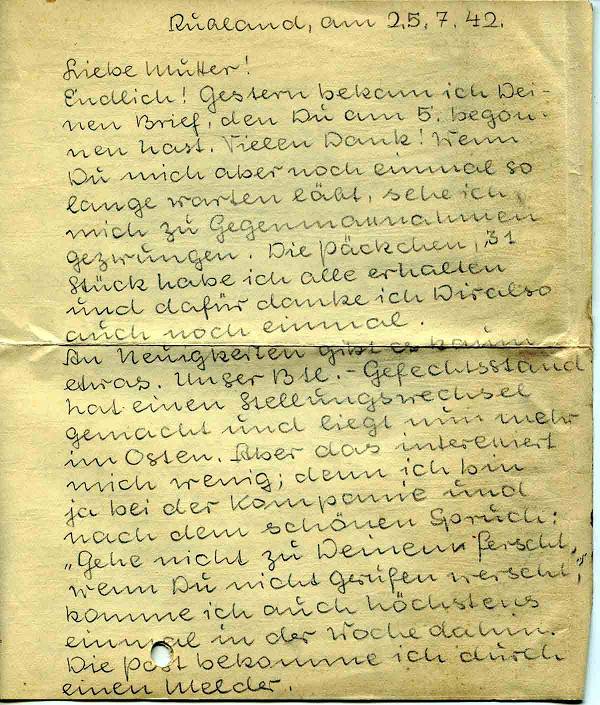 Rußland, am 25.7.42.
Liebe Mutter!
Endlich! Gestern bekam ich Dei-
nen Brief, den Du am 5. begon-
nen hast. Vielen Dank! Wenn
Du mich aber noch einmal so
lange warten läßt, sehe ich
mich zu Gegenmaßnahmen
gezwungen. Die Päckchen, 31
Stück habe ich alle erhalten
und dafür danke ich Dir also
auch noch einmal.
An Neuigkeiten gibt es kaum
etwas. Unser Btl.-Gefechtsstand
hat einen Stellungswechsel
gemacht und liegt nun mehr
im Osten. Aber das interessiert
mich wenig; denn ich bin
ja bei der Kompanie und
nach dem schönen Spruch:
„Gehe nicht zu Deinem Ferscht,
wenn Du nicht gerufen werscht,"
komme ich auch höchstens
einmal in der Woche dahin.
Die Post bekomme ich durch
einen Melder.